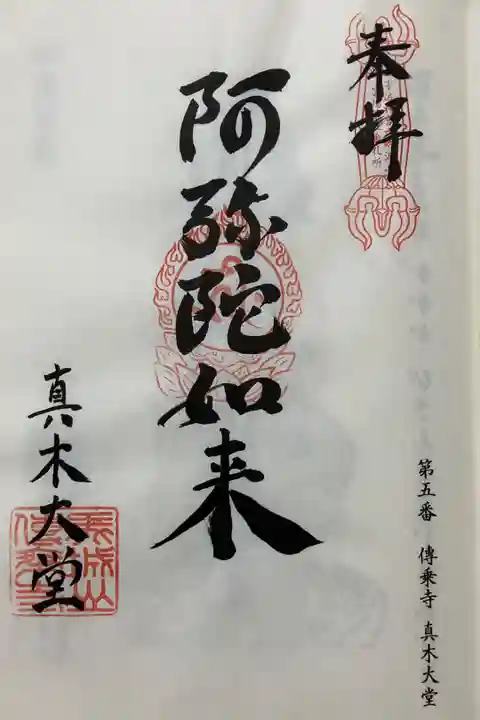 奉拝
阿弥陀如来
真木大堂
第五番 傳乗寺 真木大堂